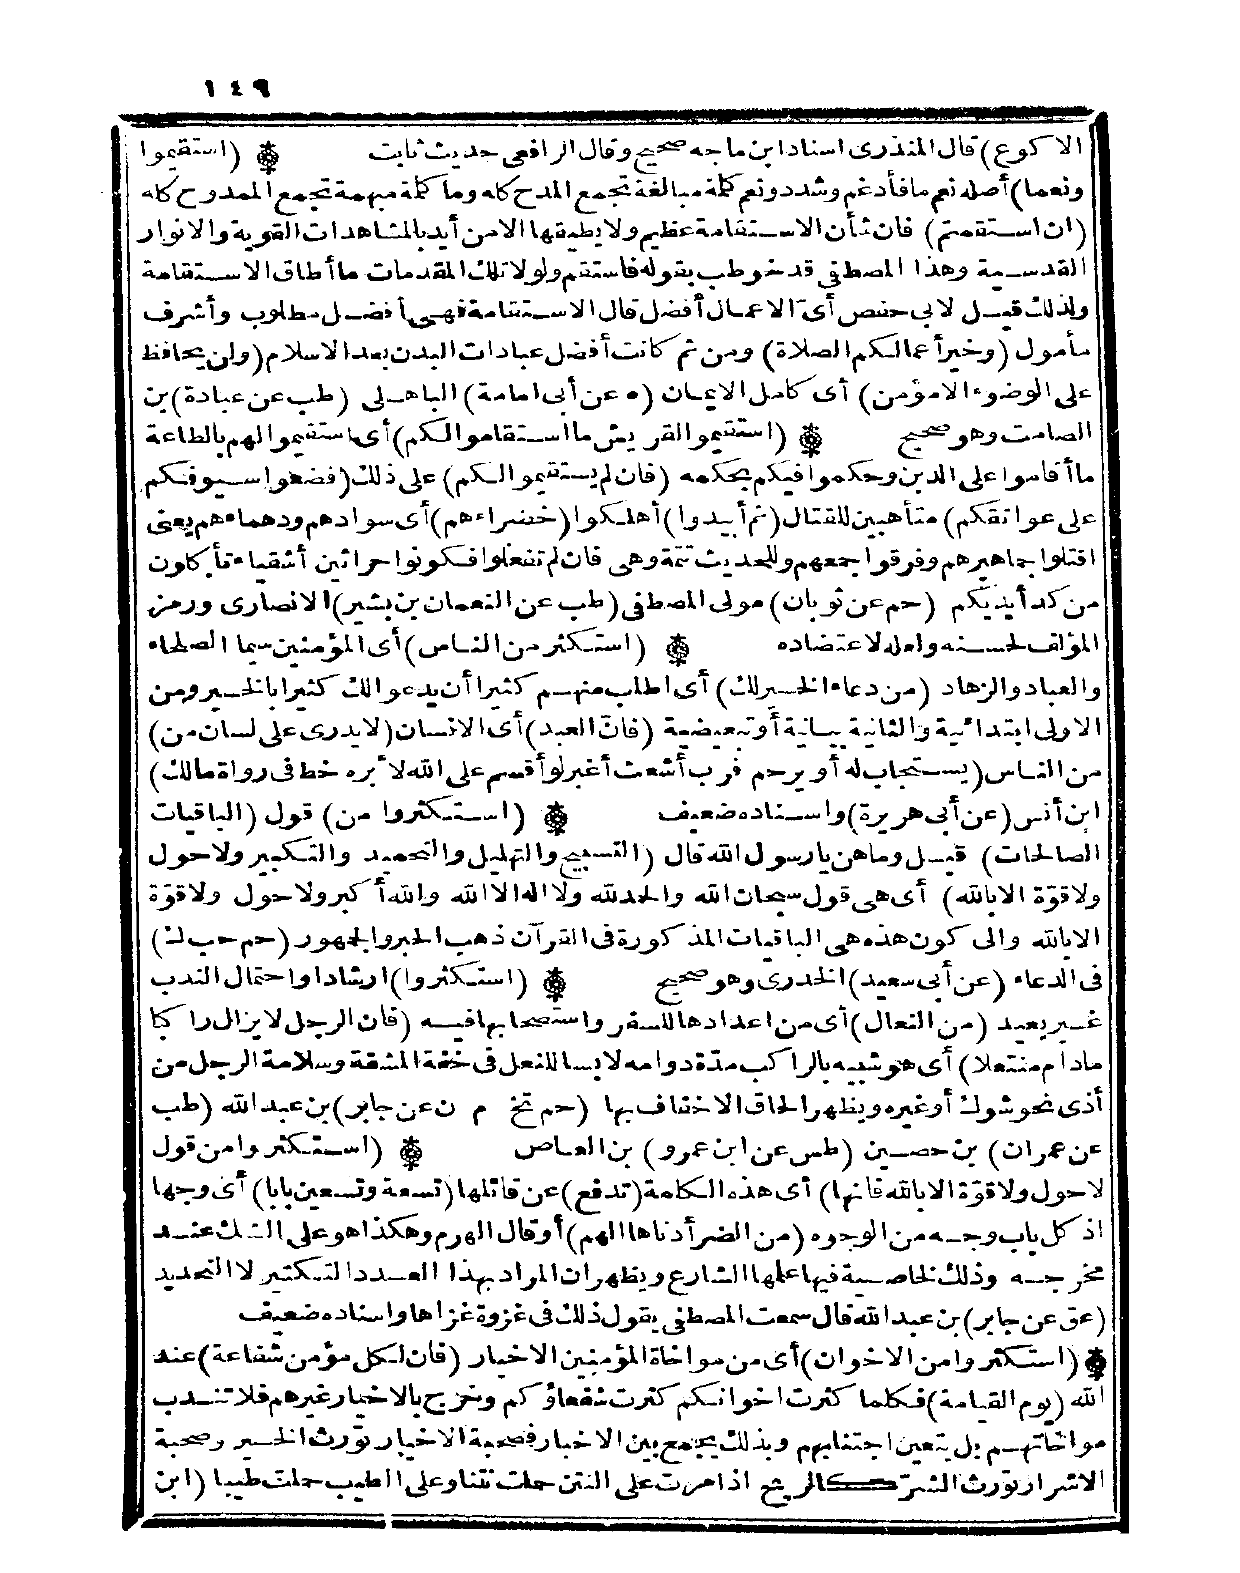 ١٤٩
الاكوع) قال المنذرى اسناد ابن ماجه صحيح وقال الرافعى حديث ثابت ۞ (استقيموا
ونعما) أصله نعم ما فأدغم وشدد ونعم كلمة مبالغة تجمع المدح كله وما كلمة مبهمة تجمع الممدوح كله
(ان استقمتم) فان شأن الاستقامة عظيم ولا يطيقها الا من أيد بالمشاهدات القوية والانوار
القدسية وهذا المصطفى قد خوطب بقوله فاستقم ولولا تلك المقدمات ما أطاق الاستقامة
ولذلك قيل لابى حفص أىّ الاعمال أفضل قال الاستقامة فهى أفضل مطلوب وأشرف
مأمول (وخير أعمالكم الصلاة) ومن ثم كانت أفضل عبادات البدن بعد الاسلام (ولن يحافظ
على الوضوء الا مؤمن) أى كامل الايمان (ه عن أبى امامة) الباهلى (طب عن عبادة) بن
الصامت وهو صحيح ۞ (استقيموا لقريش ما استقاموا لكم) أى استقيموا لهم بالطاعة
ما أقاموا على الدين وحكموا فيكم بحكمه (فان لم يستقيموا لكم) على ذلك (فضعوا سيوفكم
على عواتقكم) متأهبين للقتال (ثم أبيدوا) أهلكوا (خضراءهم) أى سوادهم ودهماءهم يعنى
اقتلوا جماهيرهم وفرقوا جمعهم وللحديث تتمة وهى فان لم تفعلوا فكونوا حراثين أشقياء تأكلون
من كد أيديكم (حم عن ثوبان) مولى المصطفى (طب عن النعمان بن بشير) الانصارى ورمز
المؤلف لحسنه ولعله لاعتضاده ۞ (استكثر من الناس) أى المؤمنين سيما الصلحاء
والعباد والزهاد (من دعاء الخير لك) أى اطلب منهم كثيرا أن يدعوا لك كثيرا بالخير ومن
الاولى ابتدائية والثانية بيانية أو تبعيضية (فان العبد) أى الانسان (لا يدرى على لسان من)
من الناس (يستجاب له أو يرحم فرب أشعث أغبر لو أقسم على الله لأبره خط فى رواة مالك)
ابن أنس (عن أبى هريرة) واسناده ضعيف ۞ (استكثروا من) قول (الباقيات
الصالحات) قيل وما هن يا رسول الله قال (التسبيح والتهليل والتحميد والتكبير ولا حول
ولا قوّة الا بالله) أى هى قول سبحان الله والحمد لله ولا اله الا الله والله أكبر ولا حول ولا قوّة
الا بالله والى كون هذه هى الباقيات المذكورة فى القرآن ذهب الحبر والجمهور (حم حب ك)
فى الدعاء (عن أبى سعيد) الخدرى وهو صحيح ۞ (استكثروا) ارشادا واحتمال الندب
غير بعيد (من النعال) أى من اعدادها للسفر واستصحابها فيه (فان الرجل لا يزال راكبا
مادام منتعلا) أى هو شبيه بالراكب مدّة دوامه لابسا للنعل فى خفة المشقة وسلامة الرجل من
أذى نحو شوك أو غيره ويظهر الحاق الاخفاف بها (حم تخ م ن عن جابر) بن عبد الله (طب
عن عمران) بن حصين (طس عن ابن عمرو) بن العاص ۞ (استكثروا من قول
لا حول ولا قوّة الا بالله فانها) أى هذه الكلمة (تدفع) عن قائلها (تسعة وتسعين بابا) أى وجها
اذ كل باب وجه من الوجوه (من الضر أدناها الهم) أو قال الهرم وهكذا هو على الشك عند
مخرجه وذلك لخاصية فيها علمها الشارع ويظهر ان المراد بهذا العدد التكثير لا التحديد
(عق عن جابر) بن عبد الله قال سمعت المصطفى يقول ذلك فى غزوة غزاها واسناده ضعيف
۞ (استكثروا من الاخوان) أى من مواخاة المؤمنين الاخيار (فان لكل مؤمن شفاعة) عند
الله (يوم القيامة) فكلما كثرت اخوانكم كثرت شفعاؤكم وخرج بالاخيار غيرهم فلا تندب
مواخاتهم بل يتعين اجتنابهم وبذلك يجمع بين الاخبار فصحبة الاخيار تورث الخير وصحبة
الاشرار تورث الشرّ كالريح اذا مرت على النتن حملت نتنا وعلى الطيب حملت طيبا (ابن